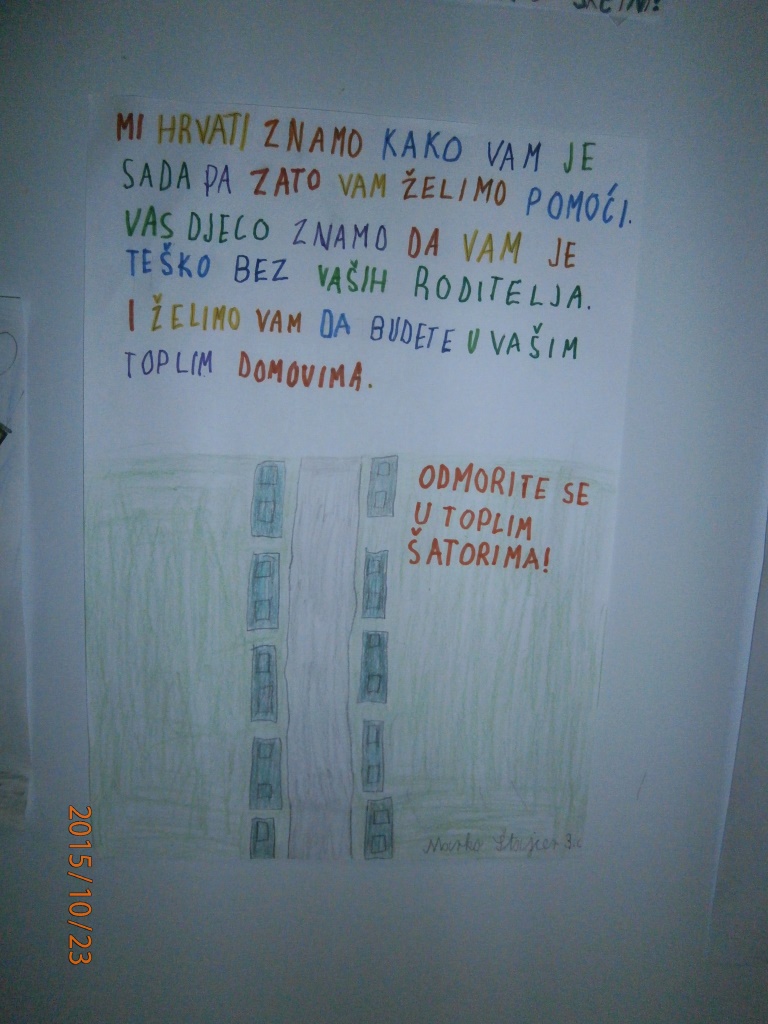 SRETNI!
MI HRVATI ZNAMO KAKO VAM JE
SADA PA ZATO VAM ŽELIMO POMOĆI.
VAS DJECO ZNAMO DA VAM JE
TEŠKO BEZ VAŠIH RODITELJA.
I ŽELIMO VAM DA BUDETE U VAŠIM
TOPLIM DOMOVIMA.
ODMORITE SE
U TOPLIM
ŠATORIMA!
Marko
2015/10/23